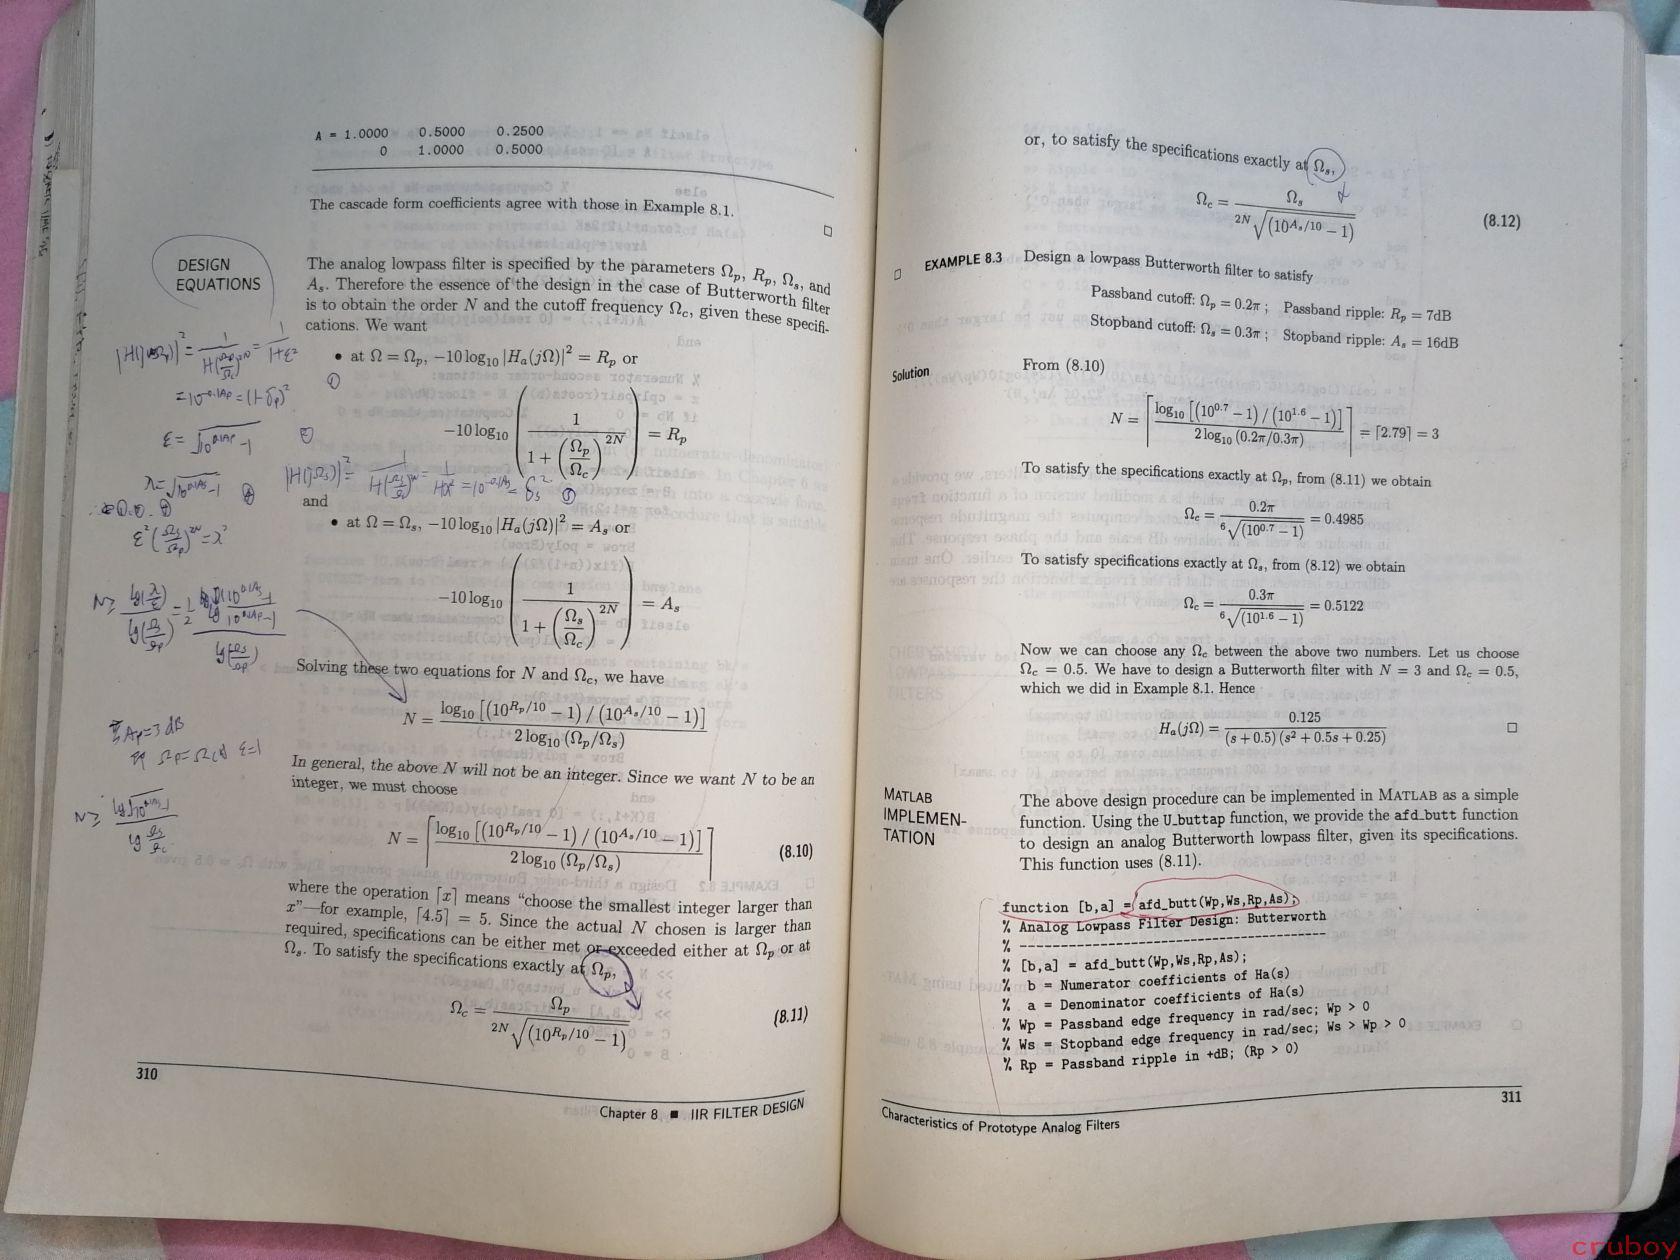 A = 1.0000 0.5000 0.2500
0 1.0000 0.5000
The cascade form coefficients agree with those in Example 8.1. □
DESIGN
EQUATIONS
The analog lowpass filter is specified by the parameters Ωp, Rp, Ωs, and
As. Therefore the essence of the design in the case of Butterworth filter
is to obtain the order N and the cutoff frequency Ωc, given these specifi-
cations. We want
• at Ω = Ωp, −10 log10 |Ha(jΩ)|² = Rp or
−10 log10 (1 / (1 + (Ωp/Ωc)^2N)) = Rp
and
• at Ω = Ωs, −10 log10 |Ha(jΩ)|² = As or
−10 log10 (1 / (1 + (Ωs/Ωc)^2N)) = As
Solving these two equations for N and Ωc, we have
N = log10 [(10^Rp/10 − 1) / (10^As/10 − 1)] / 2 log10 (Ωp/Ωs)
In general, the above N will not be an integer. Since we want N to be an
integer, we must choose
N = ⌈log10 [(10^Rp/10 − 1) / (10^As/10 − 1)] / 2 log10 (Ωp/Ωs)⌉ (8.10)
where the operation ⌈x⌉ means “choose the smallest integer larger than
x”—for example, ⌈4.5⌉ = 5. Since the actual N chosen is larger than
required, specifications can be either met or exceeded either at Ωp or at
Ωs. To satisfy the specifications exactly at Ωp,
Ωc = Ωp / 2N√(10^Rp/10 − 1) (8.11)
310
Chapter 8 ■ IIR FILTER DESIGN
|H(jΩp)|² = = 1/1+ε²
=10^-0.1Ap = (1-δp)²
ε = √10^0.1Ap −1
λ = √10^0.1As −1
ε²(Ωs/Ωp)^2N = λ²
Ap=3dB
Ωp=Ωc ε=1
or, to satisfy the specifications exactly at Ωs,
Ωc = Ωs / 2N√(10^As/10 − 1) (8.12)
□ EXAMPLE 8.3 Design a lowpass Butterworth filter to satisfy
Passband cutoff: Ωp = 0.2π ; Passband ripple: Rp = 7dB
Stopband cutoff: Ωs = 0.3π ; Stopband ripple: As = 16dB
Solution From (8.10)
N = ⌈log10 [(10^0.7 − 1) / (10^1.6 − 1)] / 2 log10 (0.2π/0.3π)⌉ = ⌈2.79⌉ = 3
To satisfy the specifications exactly at Ωp, from (8.11) we obtain
Ωc = 0.2π / 6√(10^0.7 − 1) = 0.4985
To satisfy specifications exactly at Ωs, from (8.12) we obtain
Ωc = 0.3π / 6√(10^1.6 − 1) = 0.5122
Now we can choose any Ωc between the above two numbers. Let us choose
Ωc = 0.5. We have to design a Butterworth filter with N = 3 and Ωc = 0.5,
which we did in Example 8.1. Hence
Ha(jΩ) = 0.125 / (s + 0.5) (s² + 0.5s + 0.25) □
MATLAB
IMPLEMEN-
TATION
The above design procedure can be implemented in MATLAB as a simple
function. Using the U_buttap function, we provide the afd_butt function
to design an analog Butterworth lowpass filter, given its specifications.
This function uses (8.11).
function [b,a] = afd_butt(Wp,Ws,Rp,As);
% Analog Lowpass Filter Design: Butterworth
% -------------------------------------
% [b,a] = afd_butt(Wp,Ws,Rp,As);
% b = Numerator coefficients of Ha(s)
% a = Denominator coefficients of Ha(s)
% Wp = Passband edge frequency in rad/sec; Wp > 0
% Ws = Stopband edge frequency in rad/sec; Ws > Wp > 0
% Rp = Passband ripple in +dB; (Rp > 0)
311
Characteristics of Prototype Analog Filters
cruboy